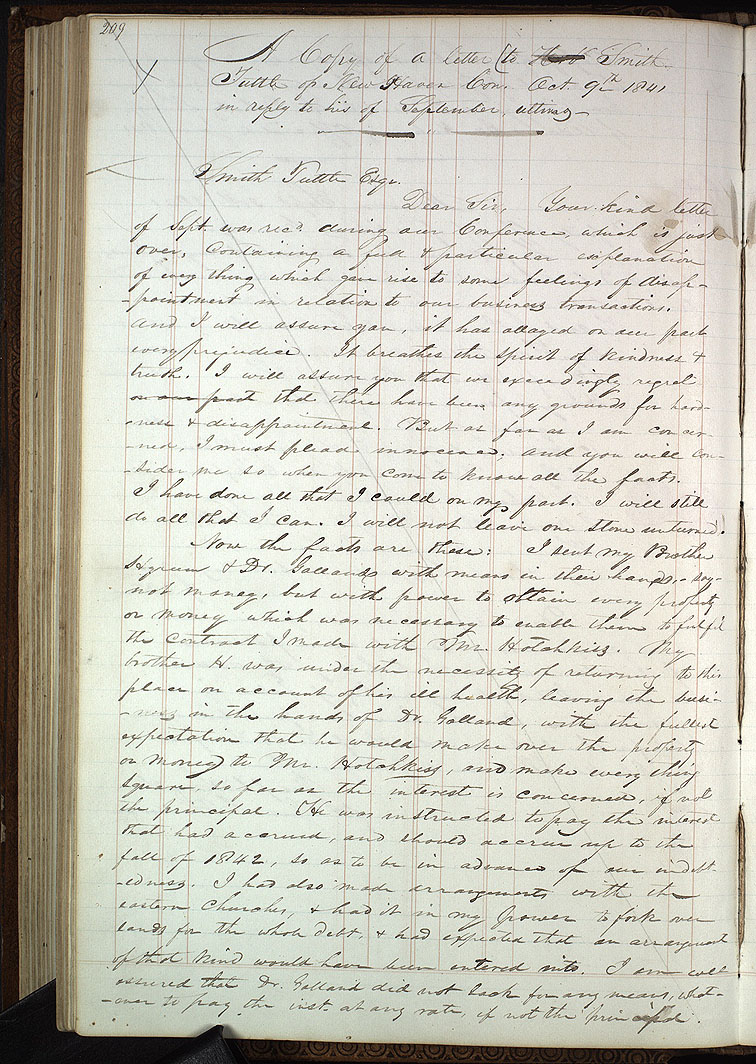 209
A Copy of a letter (to Smith
Tuttle of New Haven Con. Oct. 9th 1841
in reply to his of September, ulting—
Smith Tuttle Esqr.
Dear Sir, Your kind letter
of Sept. was recd. during our Conference, which is just
over, Containing a full & particular explanation
of every thing which gave rise to some feelings of disap-
-pointment in relation to our business transactions.
And I will assure you, it has allayed on our part
every prejudice. It breathes the spirit of kindness &
truth. I will assure you that we exceedingly regret
on our part that there have been any grounds for hard-
-ness & disappointment. But as far as I am concer-
-ned, I must plead innocence; and you will con-
-sider me so when you come to know all the facts.
I have done all that I could on my part. I will still
do all that I can. I will not leave one stone unturned.
Now the facts are these: I sent my Brother
Hyrum & Dr. Gallands with means in their hands,- say-
not money, but with power to obtain every property
or money which was necessary to enable them to fulfil
the contract I made with Mr. Hotchkiss. My
brother H. was under the necessity of returning to this
place on account of his ill health, leaving the busi-
-ness in the hands of Dr. Galland, with the fullest
expectation that he would make over the property
or money to Mr. Hotchkiss, and make every thing
square, so far as the interest is concerned, if not
the principal. He was instructed to pay the interest
that had accrued, and should accrue up to the
fall of 1842, so as to be in advance of our indebt-
-edness. I had also made arrangements with the
eastern Churches, & had it in my power to fork over
lands for the whole debt, & had expected that an arrangement
of that kind would have been entered into. I am well
assured that Dr. Galland did not lack for any means, what-
-ever to pay the inst. at any rate, if not the principal.